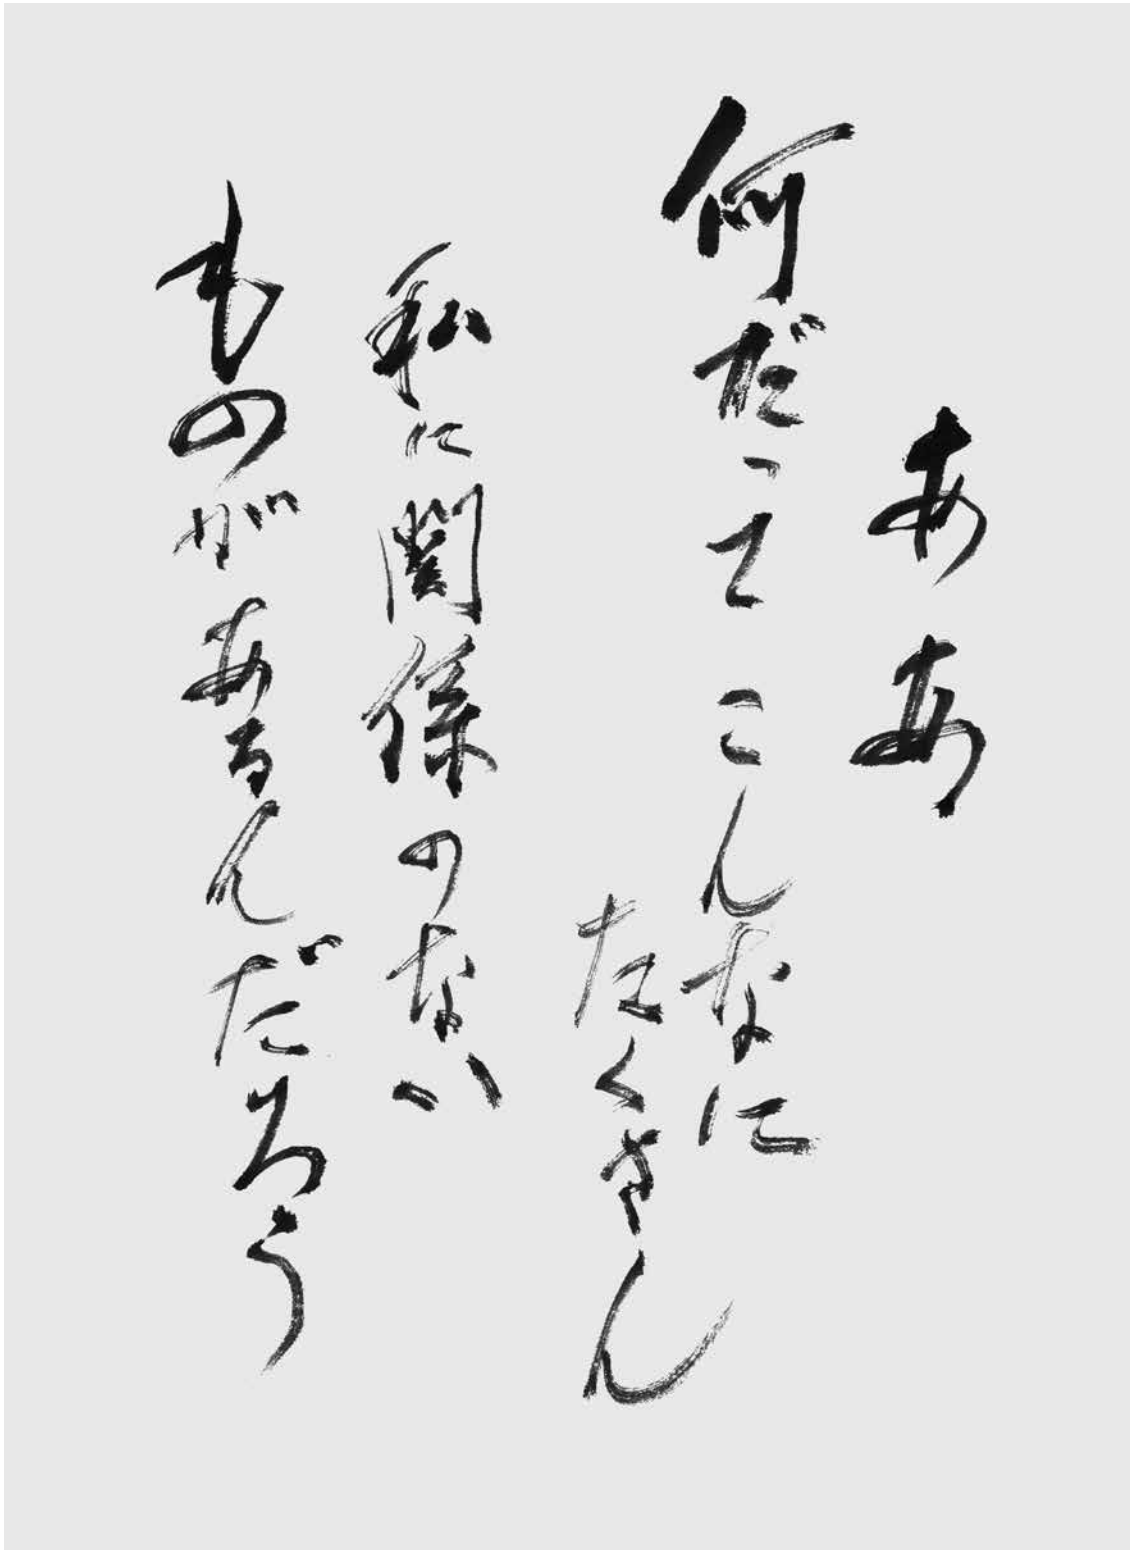 ああ
何だってこんなに
たくさん
私に関係のない
ものがあるんだろう